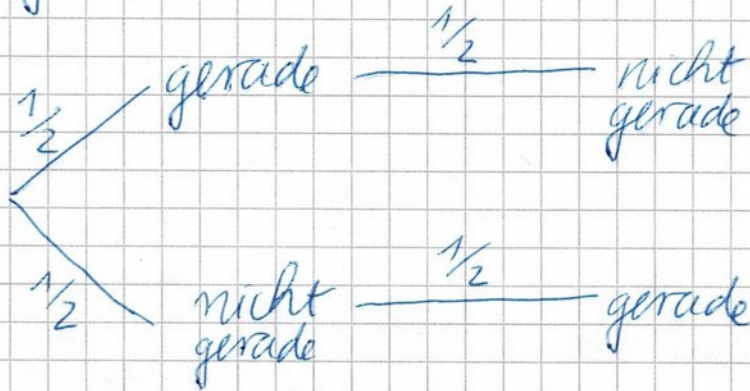 1/2
gerade
1/2
nicht
gerade
1/2
nicht
gerade
1/2
gerade